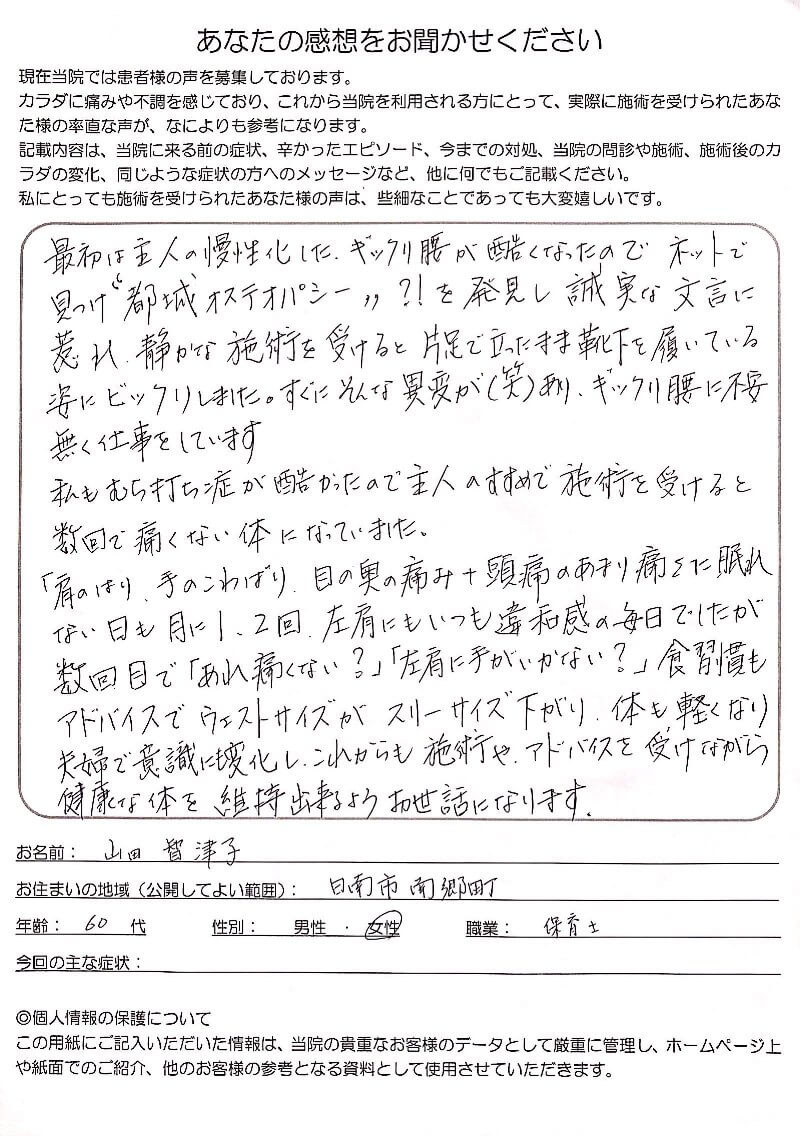 あなたの感想をお聞かせください
現在当院では患者様の声を募集しております。
カラダに痛みや不調を感じており、これから当院を利用される方にとって、実際に施術を受けられたあな
た様の率直な声が、なによりも参考になります。
記載内容は、当院に来る前の症状、辛かったエピソード、今までの対処、当院の問診や施術、施術後のカ
ラダの変化、同じような症状の方へのメッセージなど、他に何でもご記載ください。
私にとっても施術を受けられたあなた様の声は、些細なことであっても大変嬉しいです。
最初は主人の慢性化した、ギックリ腰が酷くなったので ネットで
見つけ“都城オステオパシー„?!を発見し誠実な文言に
惹れ、静かな施術を受けると片足で立ったまま靴下を履いている
姿にビックリしました。すぐにそんな異変が(笑)あり、ギックリ腰に不安
無く仕事をしています
私もむち打ち症が酷かったので主人のすすめで施術を受けると
数回で痛くない体になっていました。
「肩のはり、手のこわばり、目の奥の痛み+頭痛のあまり痛さに眠れ
ない日も月に1、2回、左肩にもいつも違和感の毎日でしたが
数回目で「あれ痛くない?」「左肩に手がいかない?」食習慣も
アドバイスでウェストサイズがスリーサイズ下がり、体も軽くなり
夫婦で意識に変化し、これからも施術や、アドバイスを受けながら
健康な体を維持出来るようお世話になります。
お名前： 山田 智津子
お住まいの地域（公開してよい範囲）： 日南市南郷町
年齢： 60 代 性別： 男性 ・ 女性 職業： 保育士
今回の主な症状：
◎個人情報の保護について
この用紙にご記入いただいた情報は、当院の貴重なお客様のデータとして厳重に管理し、ホームページ上
や紙面でのご紹介、他のお客様の参考となる資料として使用させていただきます。